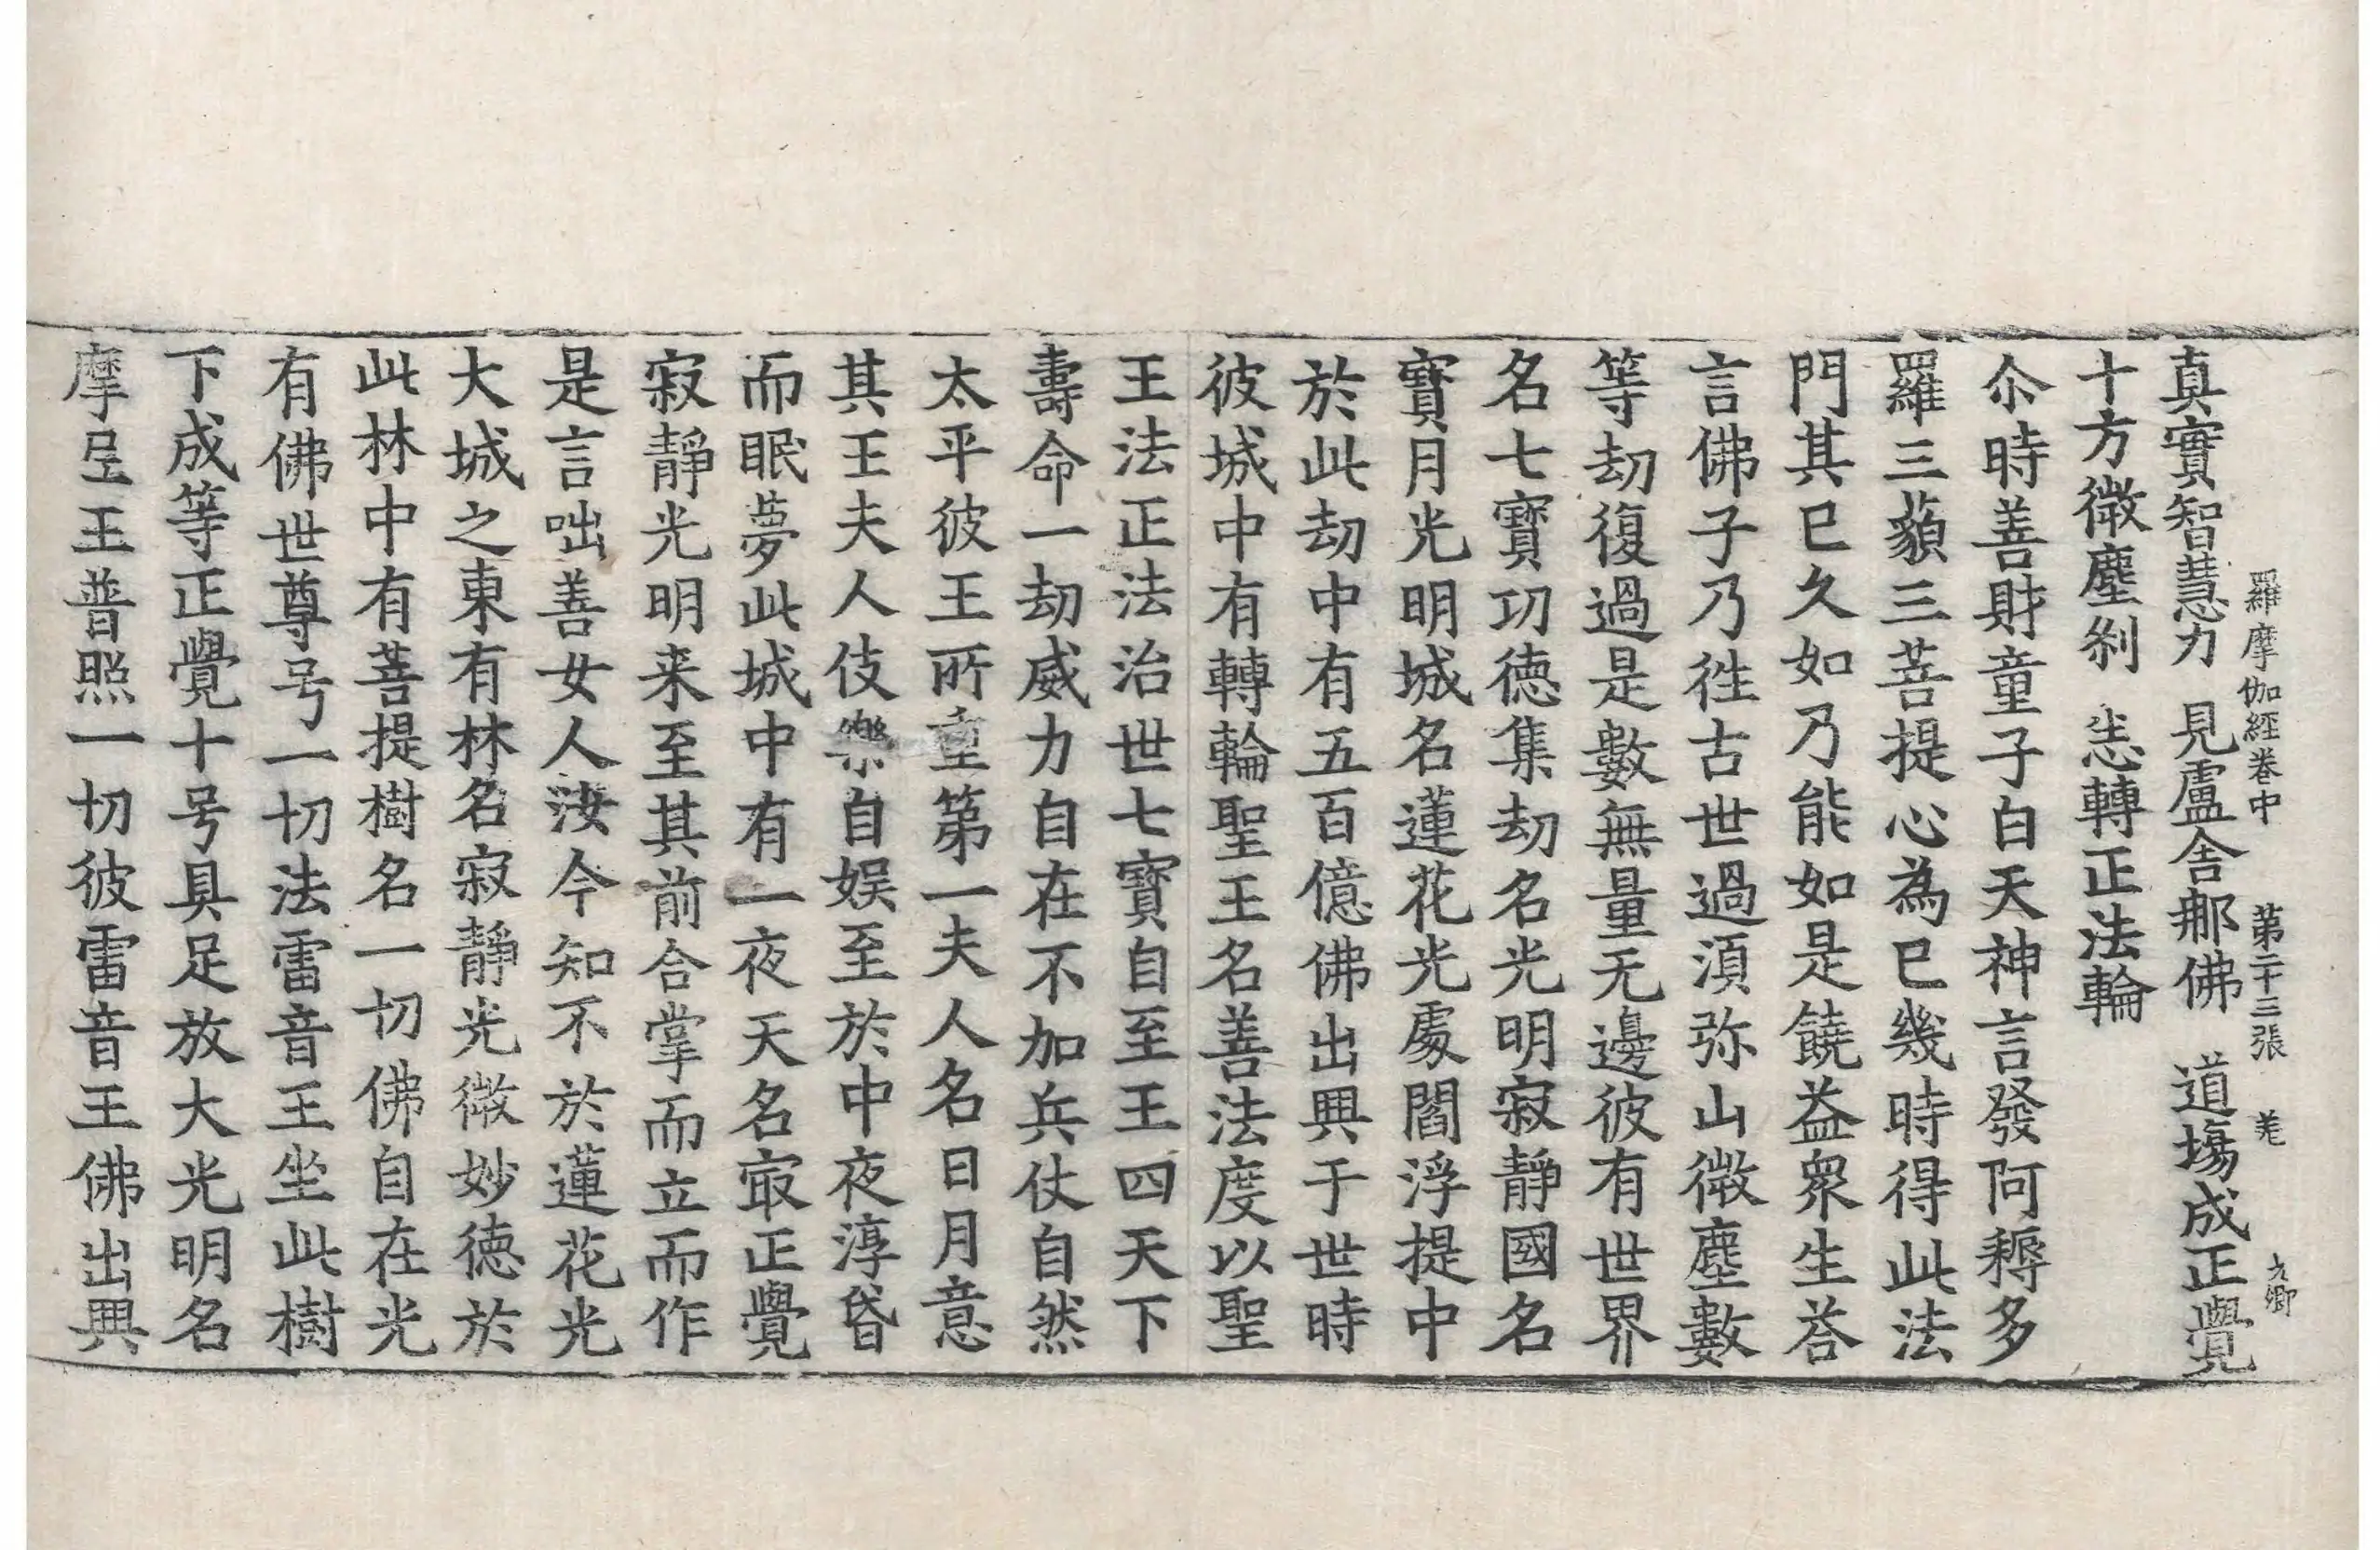 羅摩伽經卷中 第二十三張 羌
真實智慧力 見盧舍那佛 道場成正覺
十方微塵刹 悉轉正法輪
尒時善財童子白天神言發阿耨多
羅三藐三菩提心為已幾時得此法
門其已久如乃能如是饒益衆生荅
言佛子乃徃古世過湏弥山微塵數
等劫復過是數無量无邊彼有世界
名七寳功德集劫名光明寂靜國名
寳月光明城名蓮花光處閻浮提中
於此劫中有五百億佛出興于世時
彼城中有轉輪聖王名善法度以聖
王法正法治世七寳自至王四天下
壽命一劫威力自在不加兵仗自然
太平彼王所重第一夫人名日月意
其王夫人伎樂自娛至於中夜淳昏
而眠夢此城中有一夜天名㝡正覺
寂靜光明来至其前合掌而立而作
是言咄善女人汝今知不於蓮花光
大城之東有林名寂靜光微妙德於
此林中有菩提樹名一切佛自在光
有佛世尊号一切法雷音王坐此樹
下成等正覺十号具足放大光明名
摩尼王普照一切彼雷音王佛出興